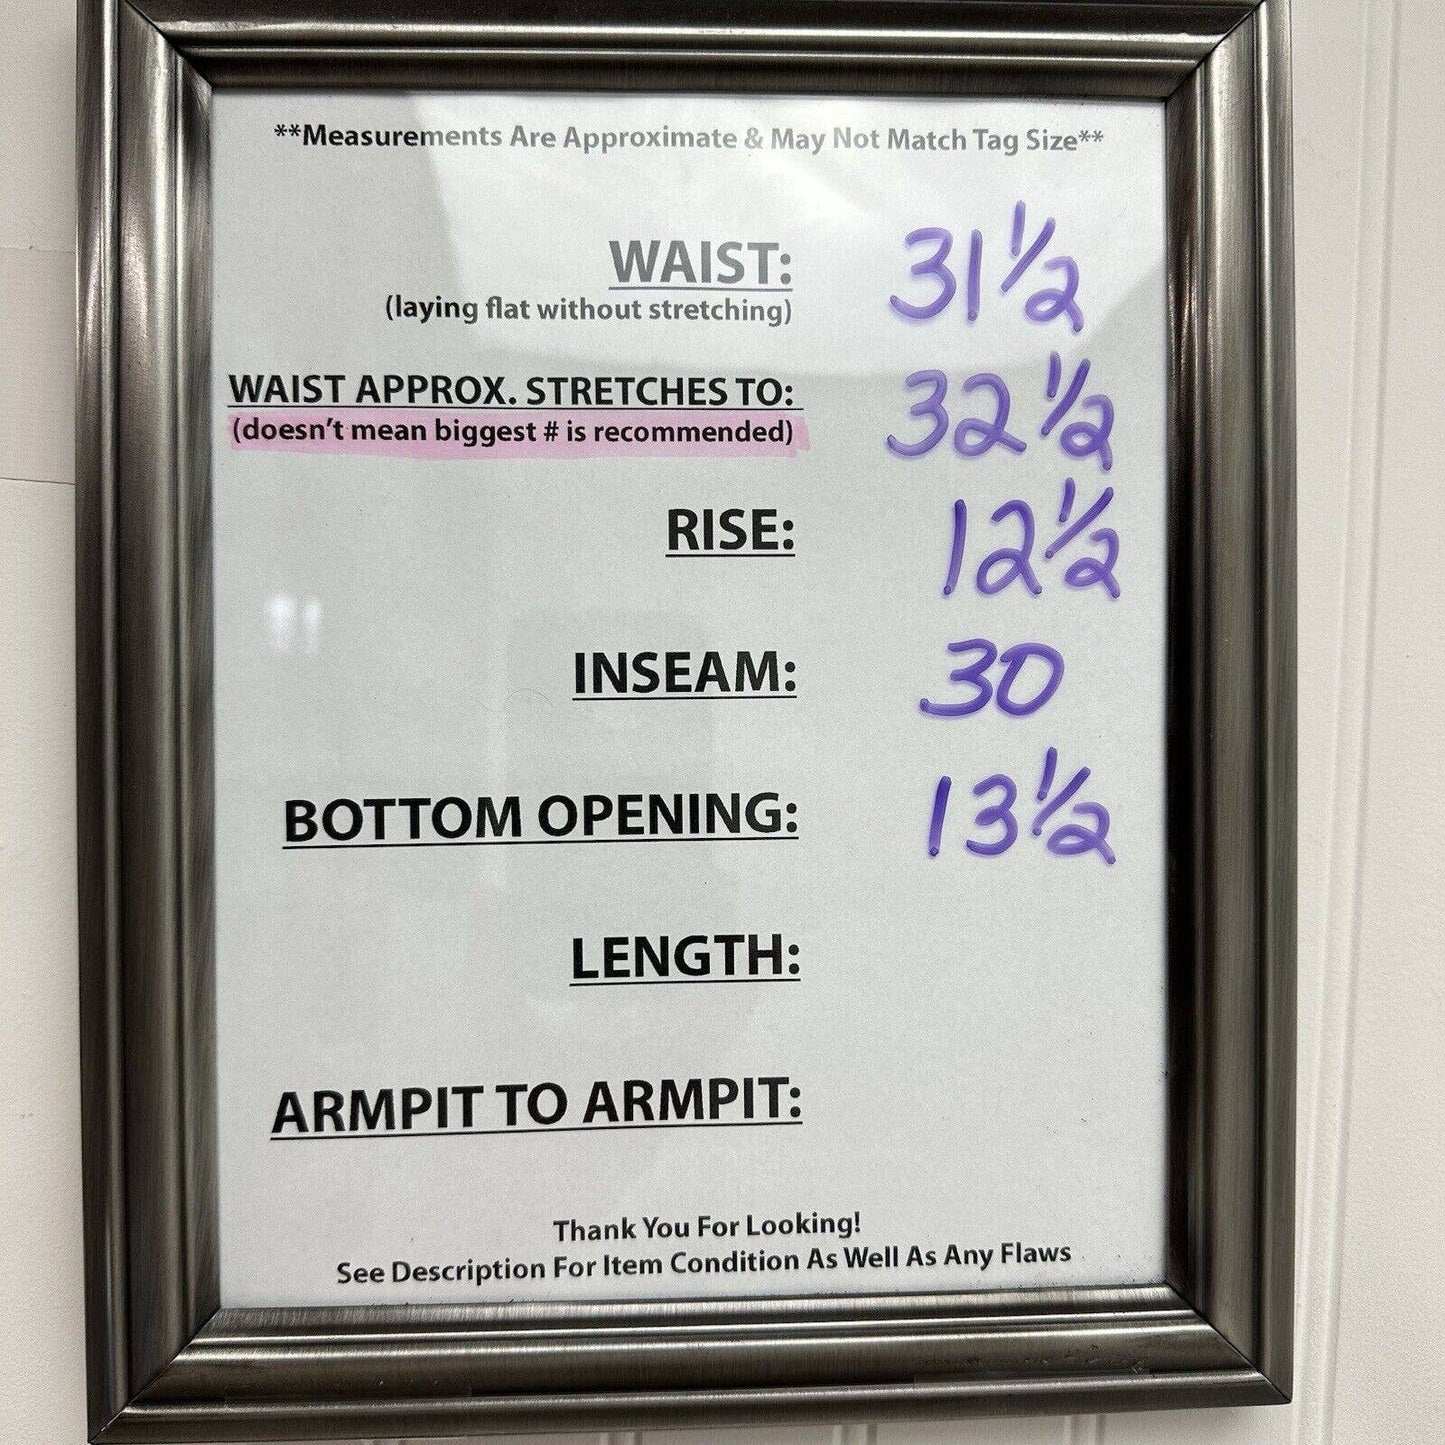 **Measurements Are Approximate & May Not Match Tag Size**
WAIST: 31 1/2
(laying flat without stretching)
WAIST APPROX. STRETCHES TO: 32 1/2
(doesn't mean biggest # is recommended)
RISE: 12 1/2
INSEAM: 30
BOTTOM OPENING: 13 1/2
LENGTH:
ARMPIT TO ARMPIT:
Thank You For Looking!
See Description For Item Condition As Well As Any Flaws